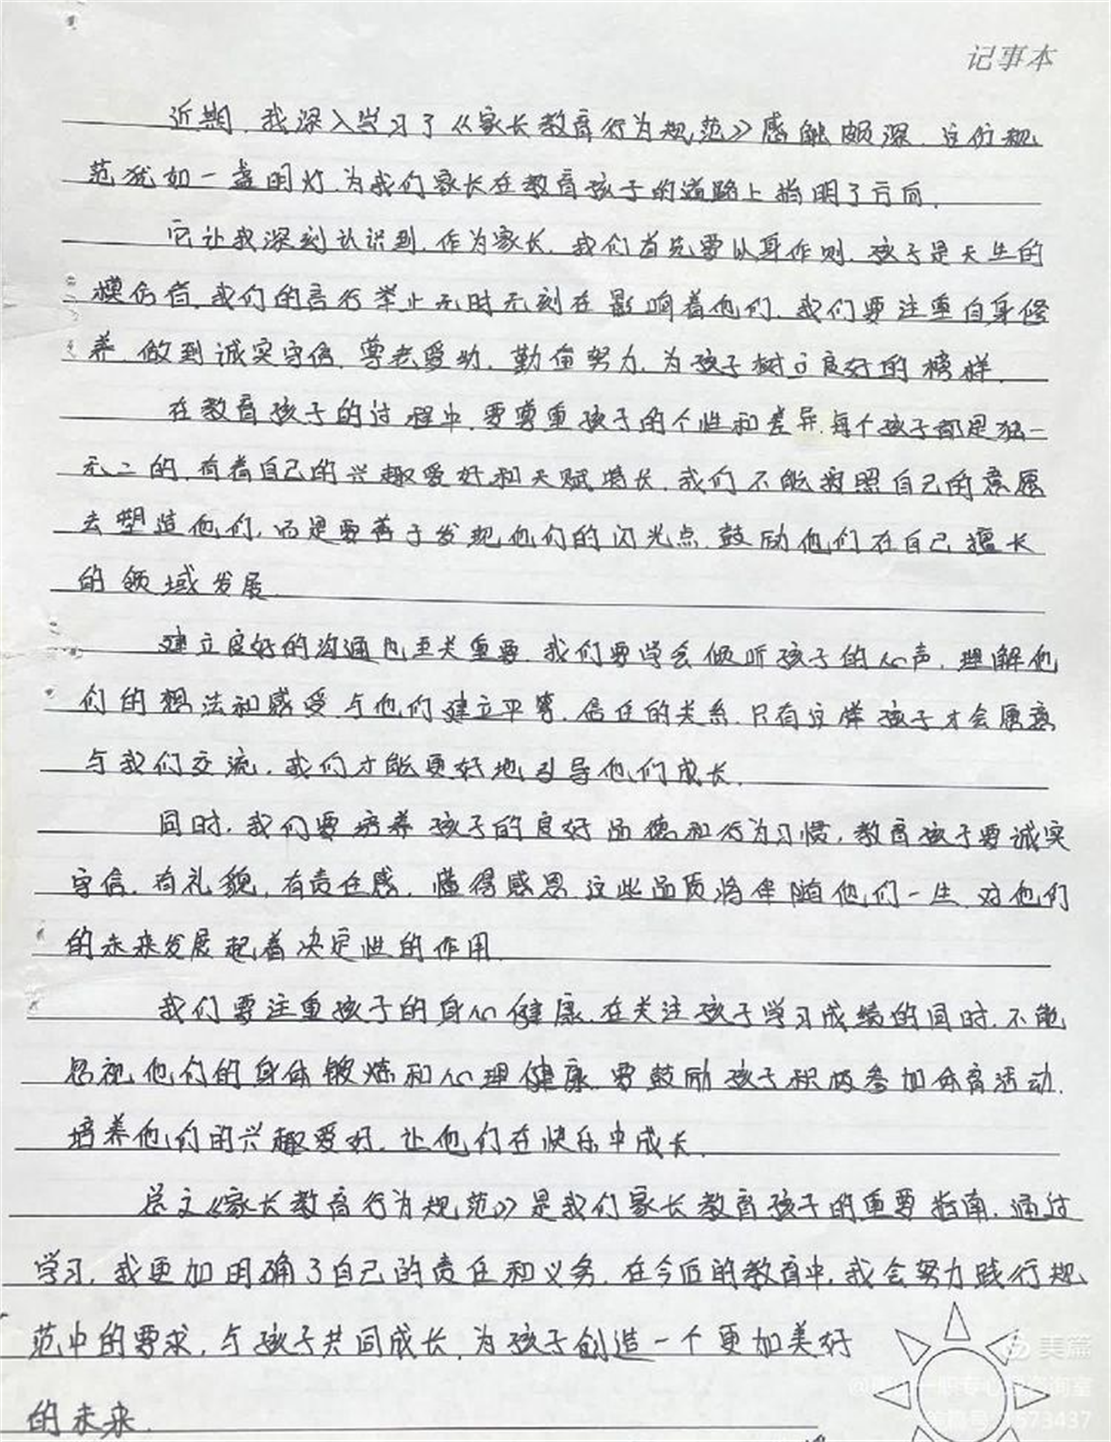 记事本
近期，我深入学习了《家长教育行为规范》感触颇深，这份规
范犹如一盏明灯，为我们家长在教育孩子的道路上指明了方向。
它让我深刻认识到，作为家长，我们首先要以身作则，孩子是天生的
模仿者，我们的言行举止无时无刻在影响着他们，我们要注重自身修
养，做到诚实守信，尊老爱幼，勤奋努力，为孩子树立良好的榜样。
在教育孩子的过程中，要尊重孩子的个性和差异，每个孩子都是独一
无二的，有着自己的兴趣爱好和天赋特长，我们不能按照自己的意愿
去塑造他们，而是要善于发现他们的闪光点，鼓励他们在自己擅长
的领域发展。
建立良好的沟通也至关重要，我们要学会倾听孩子的心声，理解他
们的想法和感受，与他们建立平等，信任的关系，只有这样孩子才会愿意
与我们交流，我们才能更好地引导他们成长。
同时，我们要培养孩子的良好品德和行为习惯，教育孩子要诚实
守信，有礼貌，有责任感，懂得感恩，这些品质将伴随他们一生，对他们
的未来发展起着决定性的作用。
我们要注重孩子的身心健康，在关注孩子学习成绩的同时，不能
忽视他们的身体锻炼和心理健康，要鼓励孩子积极参加体育活动，
培养他们的兴趣爱好，让他们在快乐中成长。
总之《家长教育行为规范》是我们家长教育孩子的重要指南，通过
学习，我更加明确了自己的责任和义务，在今后的教育中，我会努力践行规
范中的要求，与孩子共同成长，为孩子创造一个更加美好
的未来。
美篇
一职专心
询室
573437